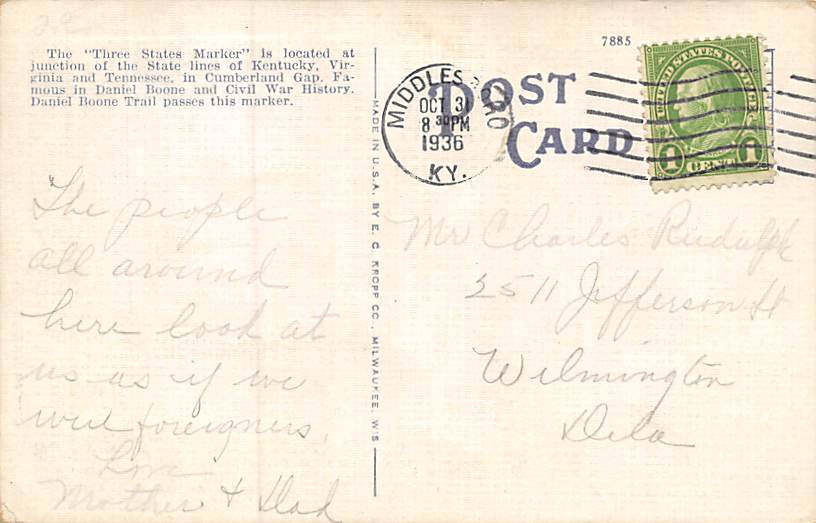 The "Three States Marker" is located at
junction of the State lines of Kentucky, Vir-
ginia and Tennessee, in Cumberland Gap. Fa-
mous in Daniel Boone and Civil War History.
Daniel Boone Trail passes this marker.
The people
all around
here look at
us as if we
were foreigners.
Love
Mother & Dad
MADE IN U.S.A. BY E. C. KROPP CO., MILWAUKEE, WIS
7885
POST
CARD
MIDDLESBORO
OCT 31
8 30PM
1936
KY.
UNITED STATES POSTAGE
1 1
CENT
Mr Charles Rudolph
2511 Jefferson St
Wilmington
Dela